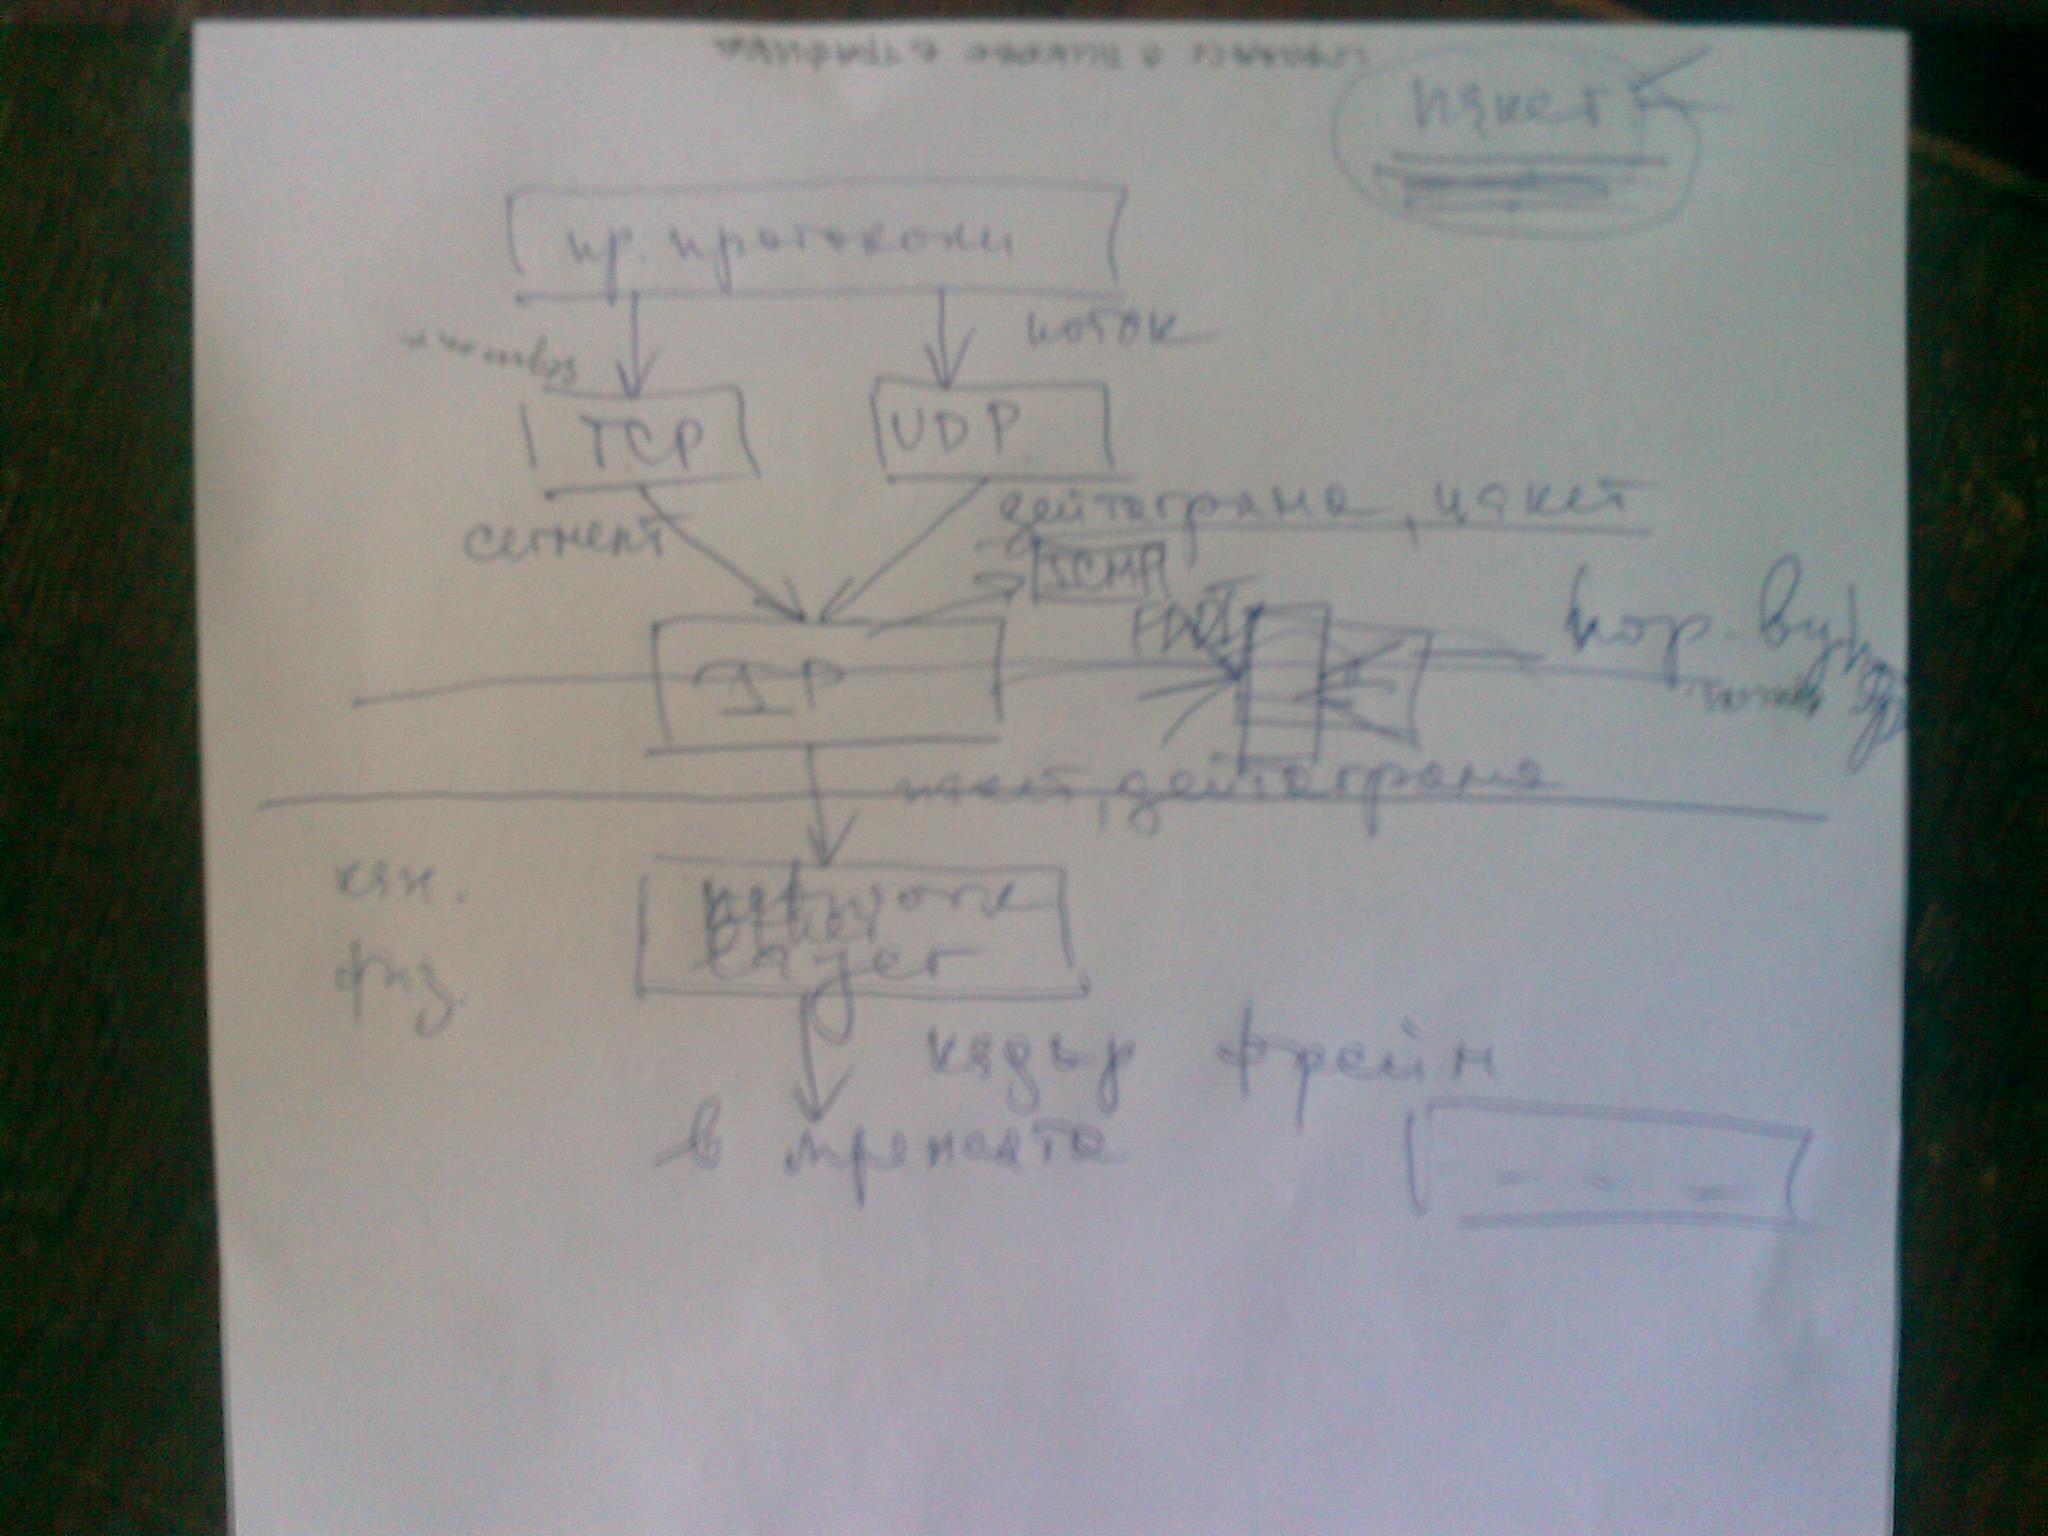 пакет
пр. протоколи
поток
TCP
UDP
сегмент
дейтаграма, пакет
ICMP
IP
пакет, дейтаграма
кан.
физ.
network
layer
кадър фрейм
в мрежата